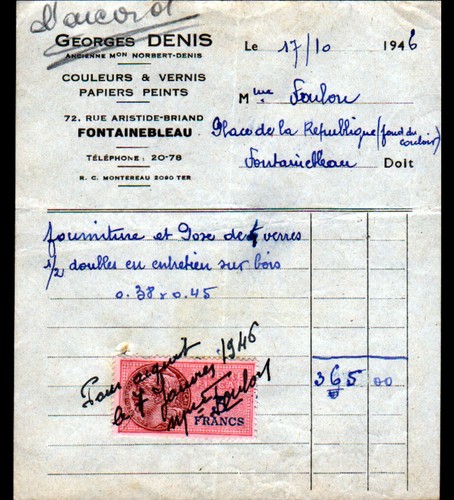 D'accord
GEORGES DENIS
ANCIENNE Mon NORBERT-DENIS
COULEURS & VERNIS
PAPIERS PEINTS
72, RUE ARISTIDE-BRIAND
FONTAINEBLEAU
TÉLÉPHONE : 20-78
R. C. MONTEREAU 2090 TER
Le 17/10 1946
Mme Foulon
Place de la Republique (fond du couloir)
Fontainebleau Doit
fourniture et Pose de 4 verres
1/2 doubles en entretien sur bois
0.38 x 0.45
365 00
Pour acquit
le 7 1946
Foulon
FRANCS